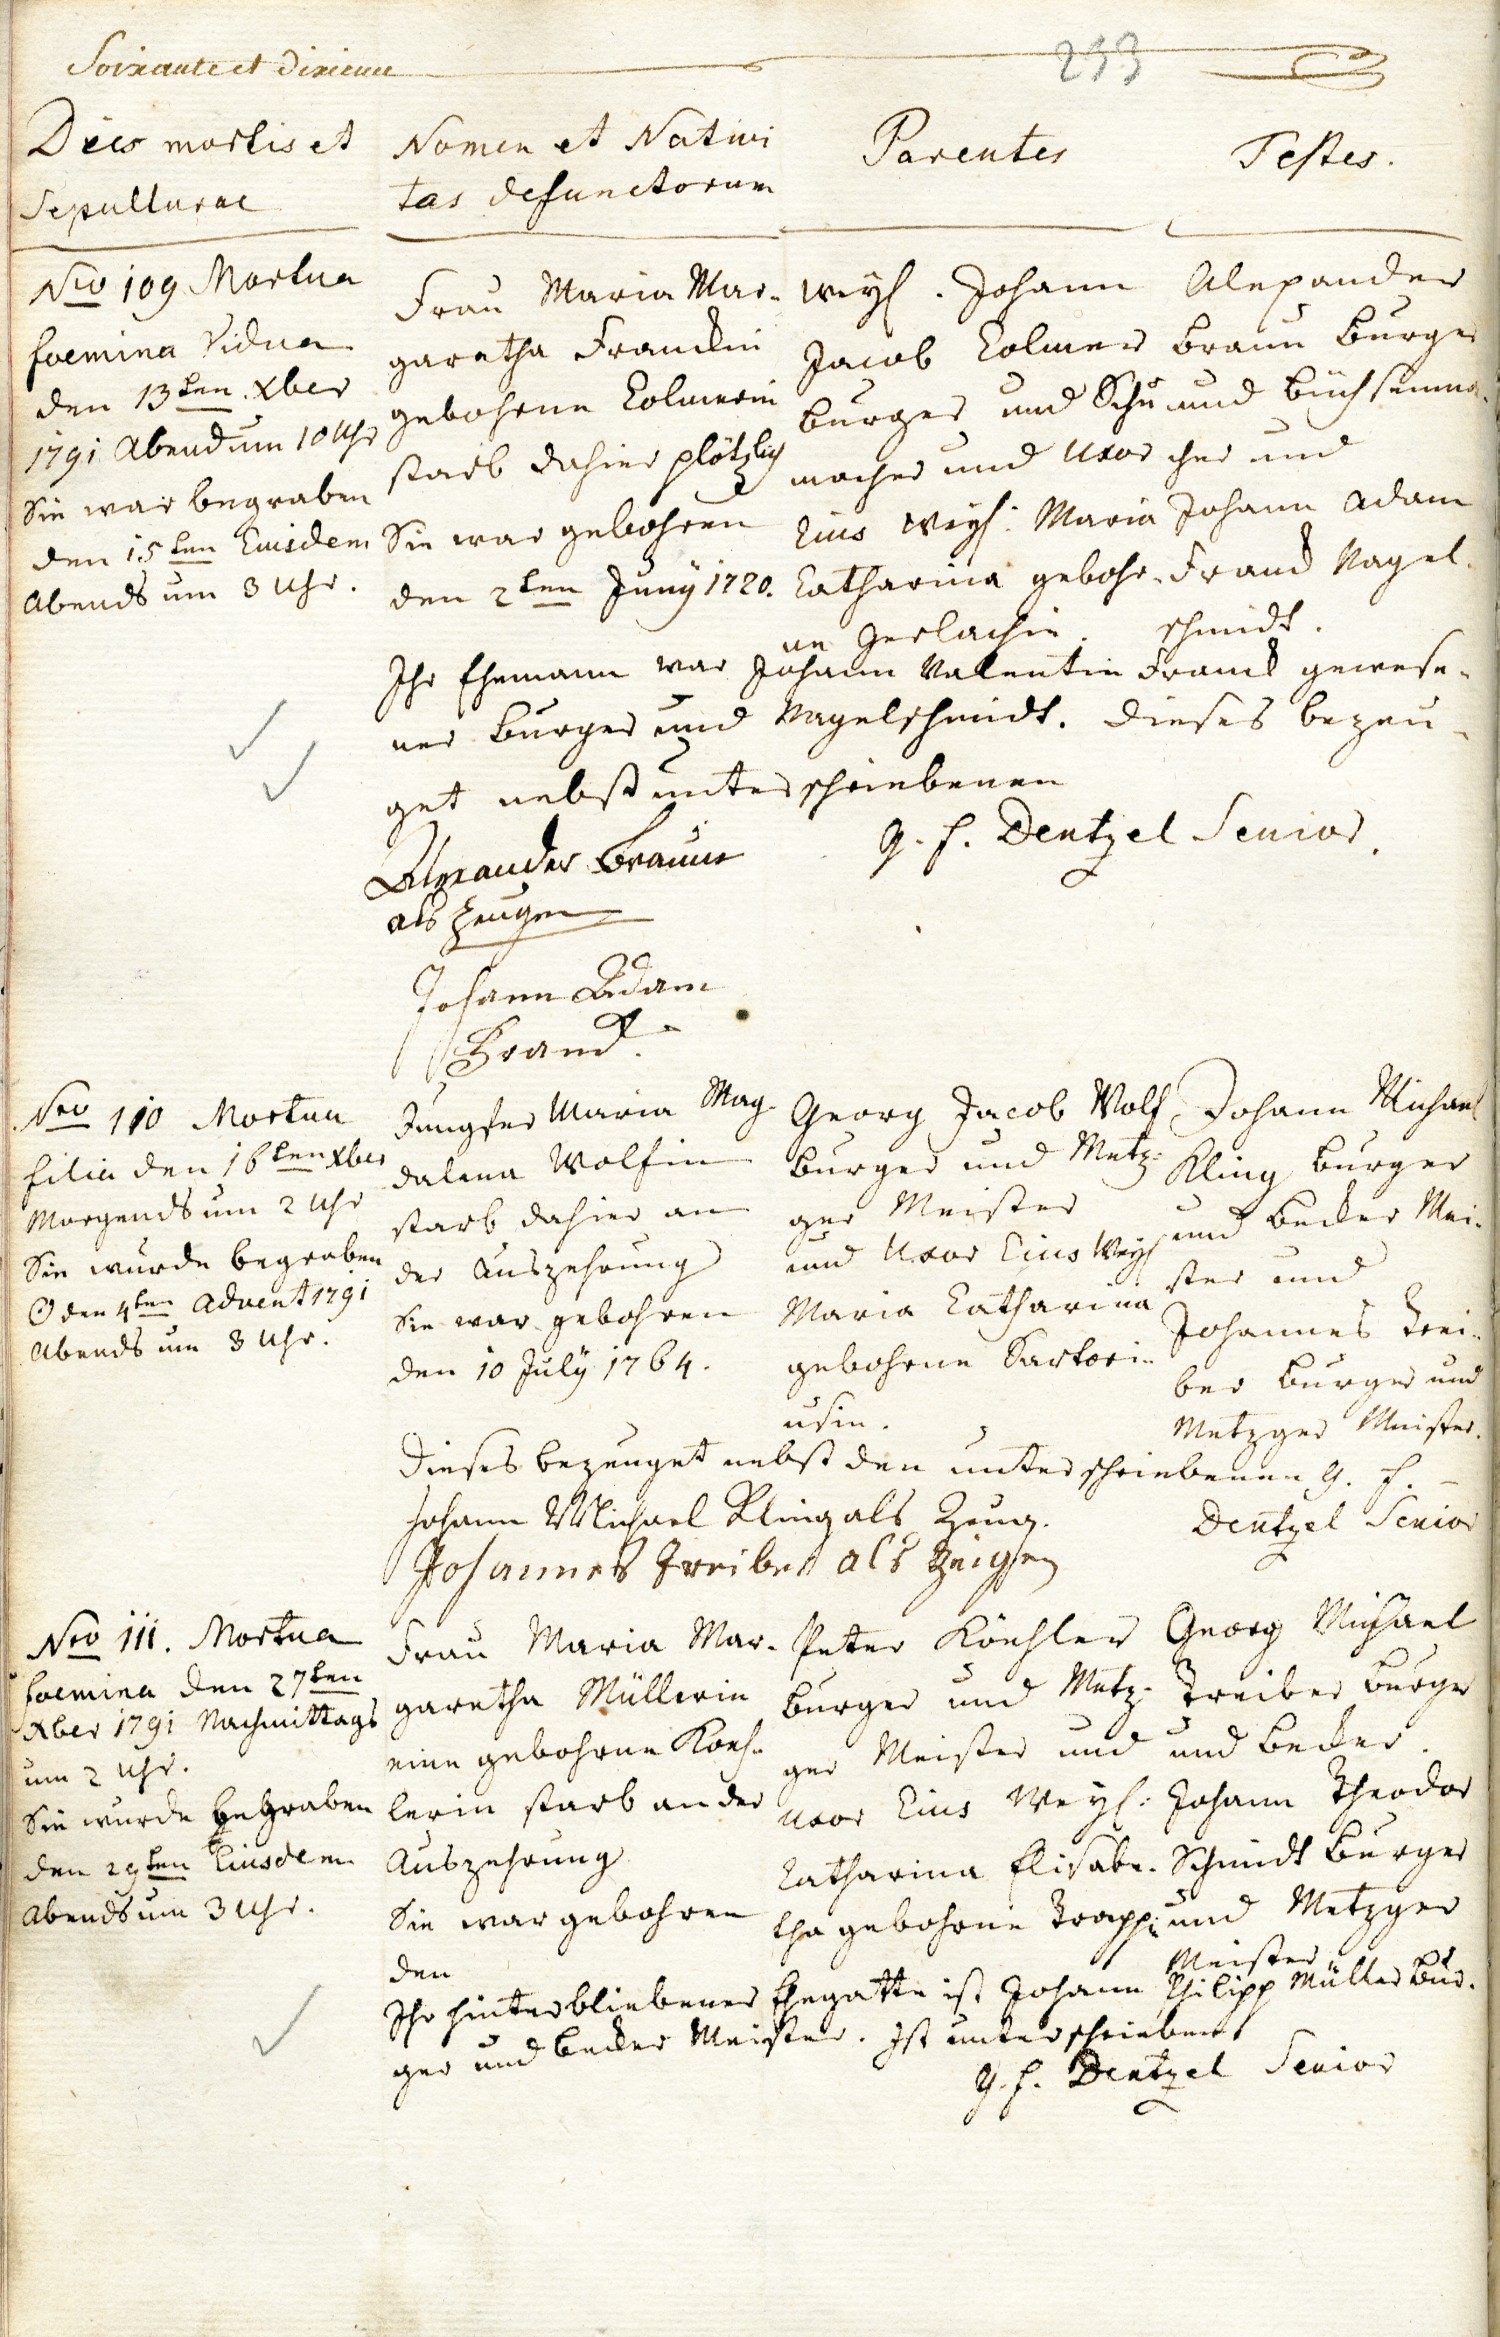 Soixante et dixieme
233
Dies mortis et
Sepulturae
Nomen et Nativi
tas defunctorum
Parentes
Testes.
Nro 109 Mortua
foemina Vidua
den 13ten Xber
1791 Abend um 10 Uhr
Sie war begraben
den 15ten Eiusdem
Abends um 3 Uhr.
Frau Maria Mar-
garetha Franckin
gebohrne Colmerin
starb dahier plötzlich
Sie war gebohren
den 2ten Juny 1720.
Weyl. Johann
Jacob Colmer
burger und Schu
macher und Uxor
Eius Weyl: Maria
Catharina gebohr-
ne Gerlachin.
Alexander
Braun Burger
und Büchsenma-
cher und
Johann Adam
Franck Nagel-
schmidt.
Ihr Ehemann war Johann Valentin Franck gewese-
ner Burger und Nagelschmidt. Dieses bezeu-
get nebst unterschriebenen
G. F. Dentzel Senior.
Alexander Braun
als Zeugen
Johann Adam
Franck.
Nro 110 Mortua
filia den 16ten Xber
Morgends um 2 Uhr
Sie wurde begraben
☉ den 4ten Advent 1791
Abends um 3 Uhr.
Jungfer Maria Mag-
dalena Wolfin
starb dahier an
der Auszehrung
Sie war gebohren
den 10 July 1764.
Georg Jacob Wolf
burger und Metz-
ger Meister
und Uxor Eius Weyl
Maria Catharina
gebohrne Sartori-
usin.
Johann Michael
Kling burger
und Becker Mei-
ster und
Johannes Trei-
ber Burger und
Metzger Meister.
Dieses bezeuget nebst den unterschriebenen G. F.
Dentzel Senior
Johann Michael Kling als Zeug.
Johannes Treiber als Zeigen
Nro 111. Mortua
foemina den 27ten
Xber 1791 Nachmittags
um 2 Uhr.
Sie wurde begraben
den 29ten Eiusdem
Abends um 3 Uhr.
Frau Maria Mar-
garetha Müllerin
eine gebohrne Koeh-
lerin starb an der
Auszehrung
Sie war gebohren
den
Peter Köehler
burger und Metz-
ger Meister und
Uxor Eius Weyl:
Catharina Elisabe-
tha gebohrne Trappi
Georg Michael
Treiber burger
und Becker.
Johann Theodor
Schmidt Burger
und Metzger
Meister
Ihr hinterbliebener Ehegatte ist Johann Philipp Müller Bur-
ger und Becker Meister. Ist unterschrieben
G. F. Dentzel Senior